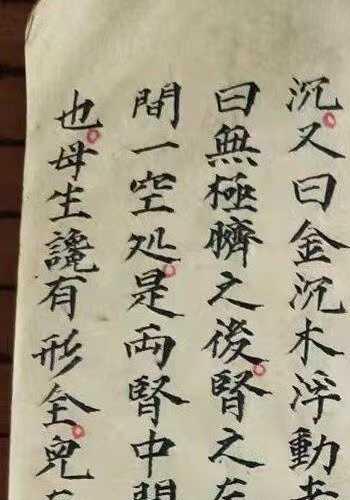 沉又曰金沉木浮動
曰無極臍之後腎之
間一空処是両腎中間
也母生讒有形全兒